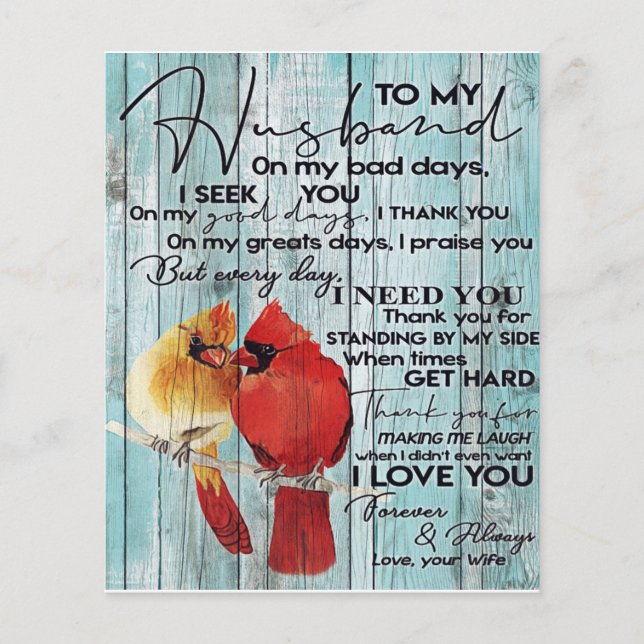 TO MY
Husband
On my bad days,
I SEEK YOU
On my good days, I THANK YOU
On my greats days, I praise you
But every day,
I NEED YOU
Thank you for
STANDING BY MY SIDE
When times
GET HARD
Thank you for
MAKING ME LAUGH
when I didn't even want
I LOVE YOU
Forever
& Always
Love, your Wife